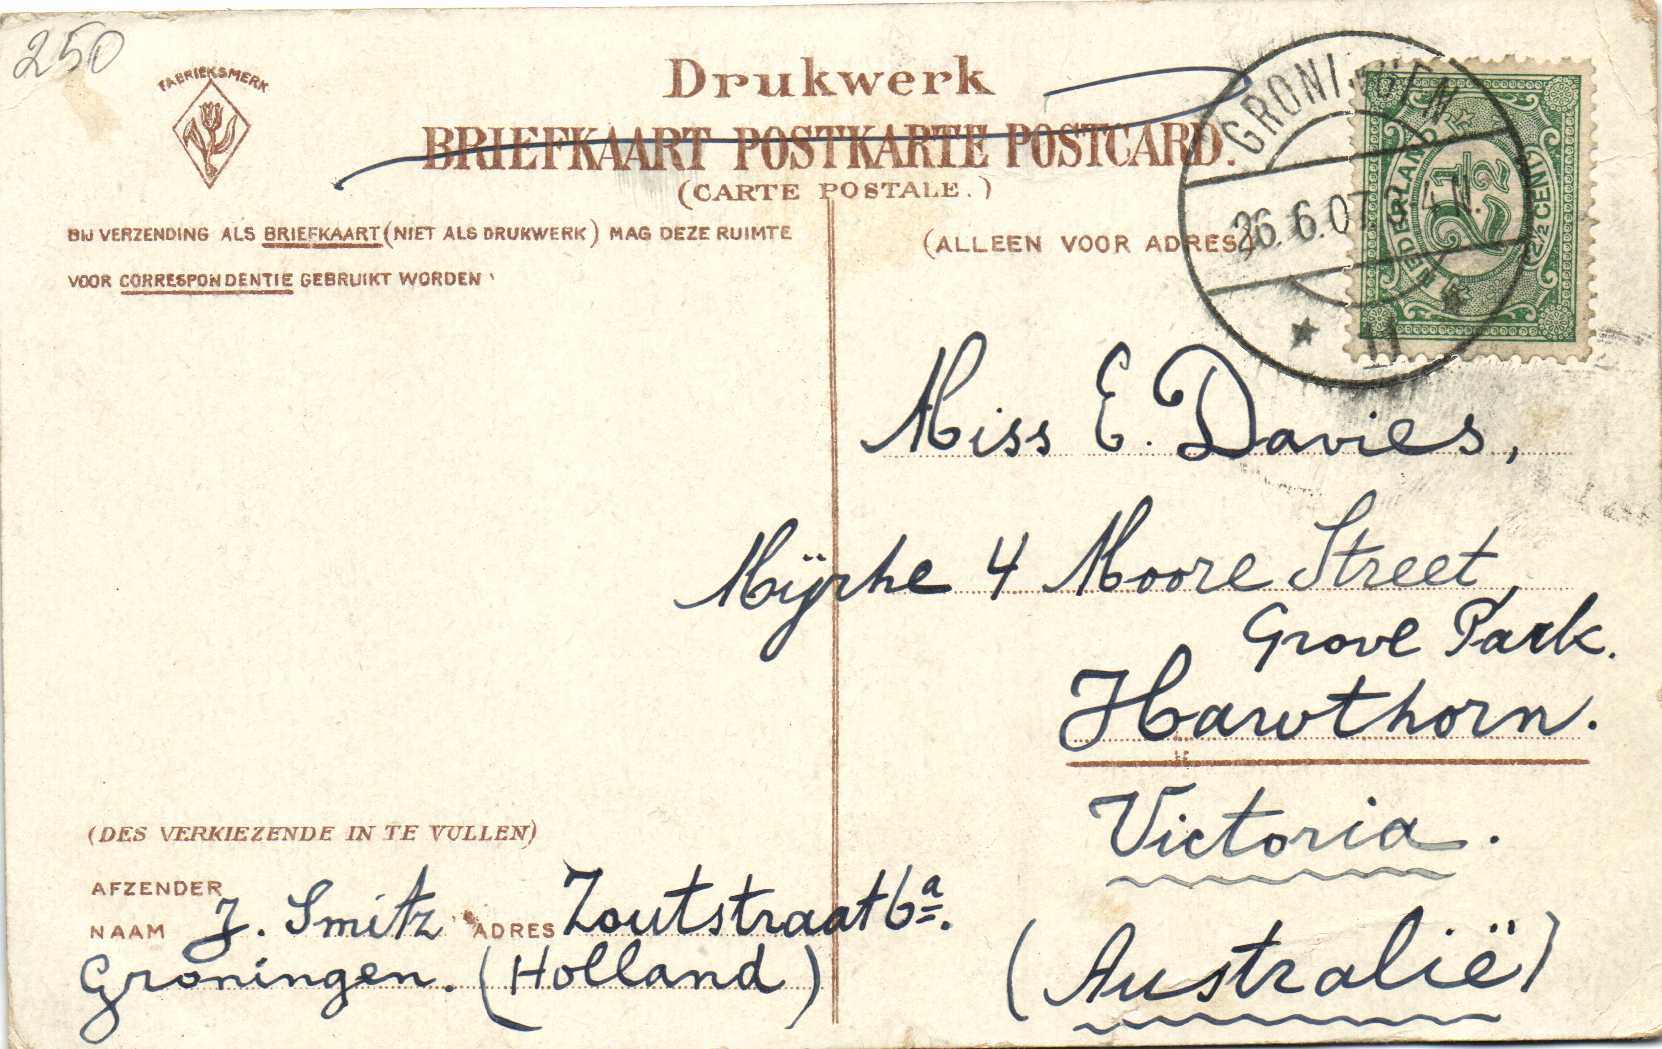 250
FABRIEKSMERK
Drukwerk
BRIEFKAART POSTKARTE POSTCARD.
(CARTE POSTALE.)
BIJ VERZENDING ALS BRIEFKAART (NIET ALS DRUKWERK) MAG DEZE RUIMTE
VOOR CORRESPONDENTIE GEBRUIKT WORDEN
(ALLEEN VOOR ADRES)
GRONINGEN
26.6.07
11
NEDERLAND
2½
(2½ CENT)
Miss E. Davies,
4 Moore Street,
Grove Park.
Hawthorn.
Victoria.
(Australië)
(DES VERKIEZENDE IN TE VULLEN)
AFZENDER
NAAM J. Smitz ADRES Zoutstraat 6a.
Groningen. (Holland)